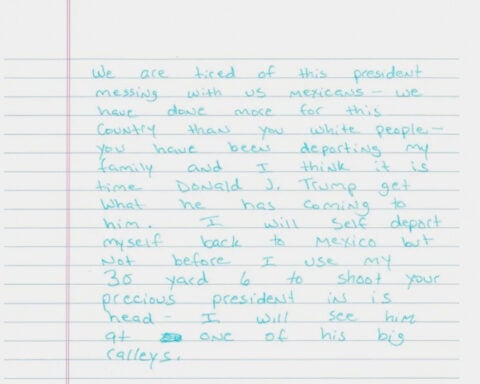 We are tired of this president
messing with us mexicans - we
have done more for this
Country than you white people -
you have been deporting my
family and I think it is
time Donald J. Trump get
What he has coming to
him. I will Self deport
myself back to Mexico but
Not before I use my
30 yard 6 to shoot your
precious president in is
head - I will see him
at one of his big
ralleys.